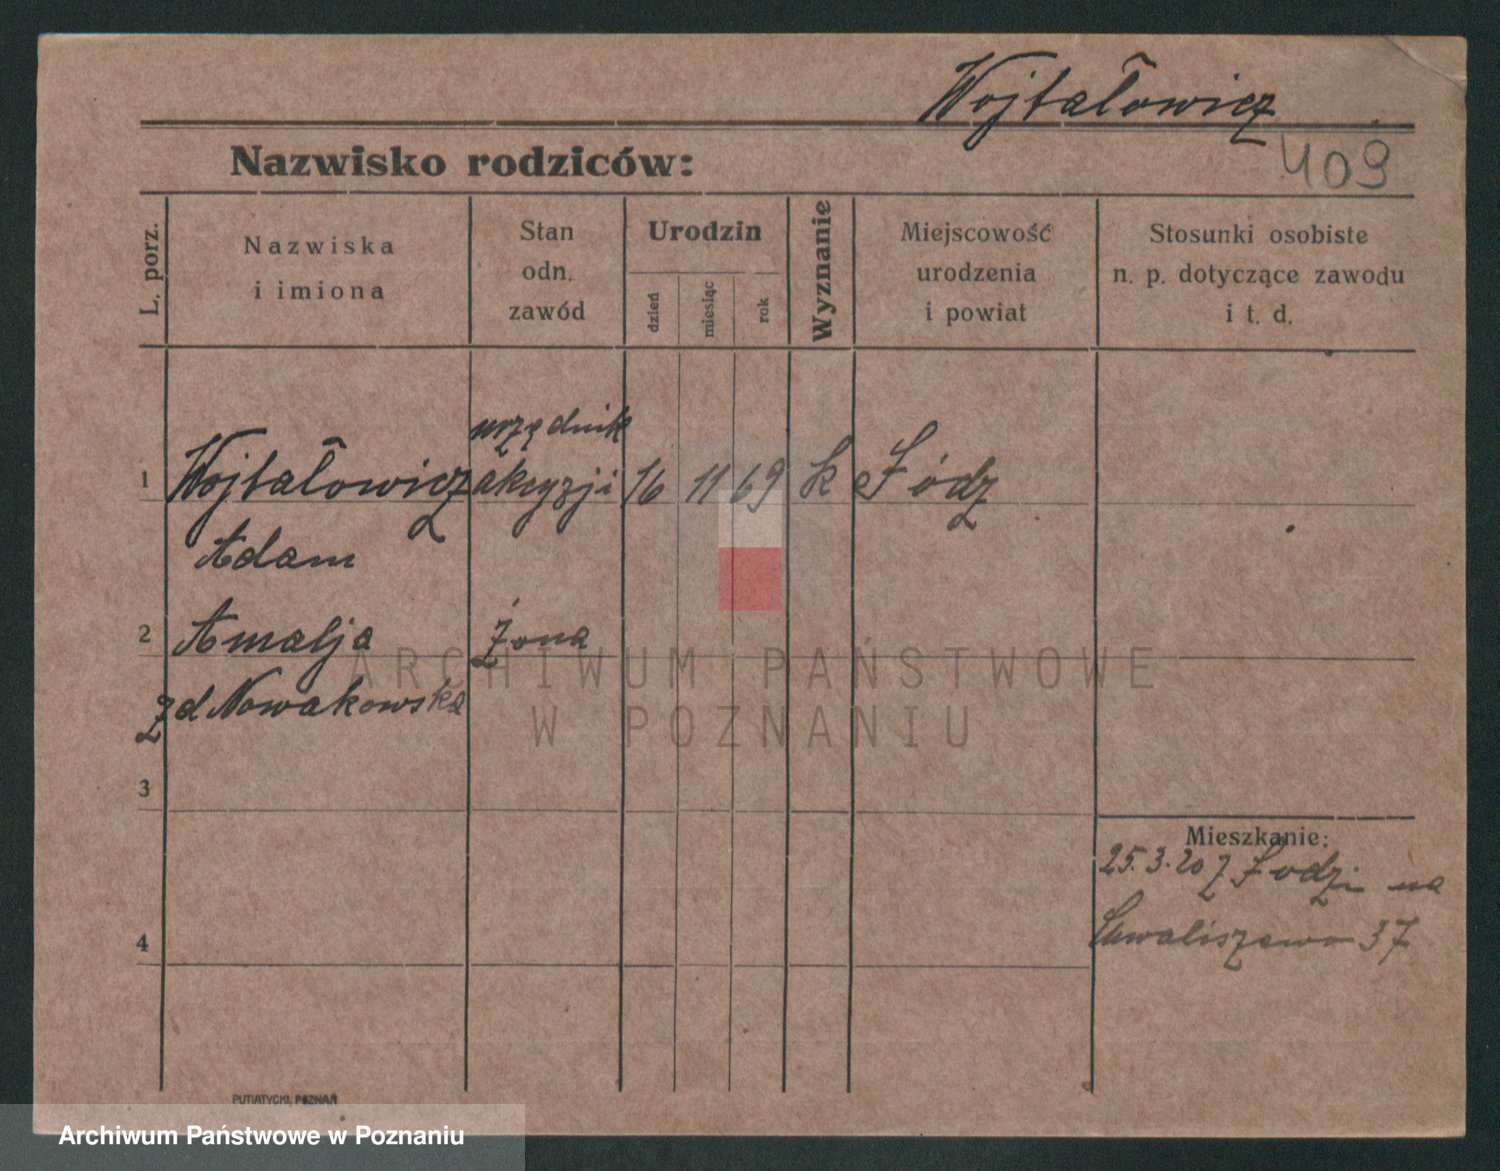 Wojtałowicz
Nazwisko rodziców:
409
L. porz.
Nazwiska
i imiona
Stan
odn.
zawód
Urodzin
dzień
miesiąc
rok
Wyznanie
Miejscowość
urodzenia
i powiat
Stosunki osobiste
n. p. dotyczące zawodu
i t. d.
urzędnik
1 Wojtałowicz akcyzji 16 11 69 k Łódz
Adam
2 Amalja żona
zd Nowakowska
3
Mieszkanie:
25.3.20 z Łodzi na
Chwaliszewo 37
4
PUTIATYCKI, POZNAŃ
ARCHIWUM PAŃSTWOWE
W POZNANIU
Archiwum Państwowe w Poznaniu